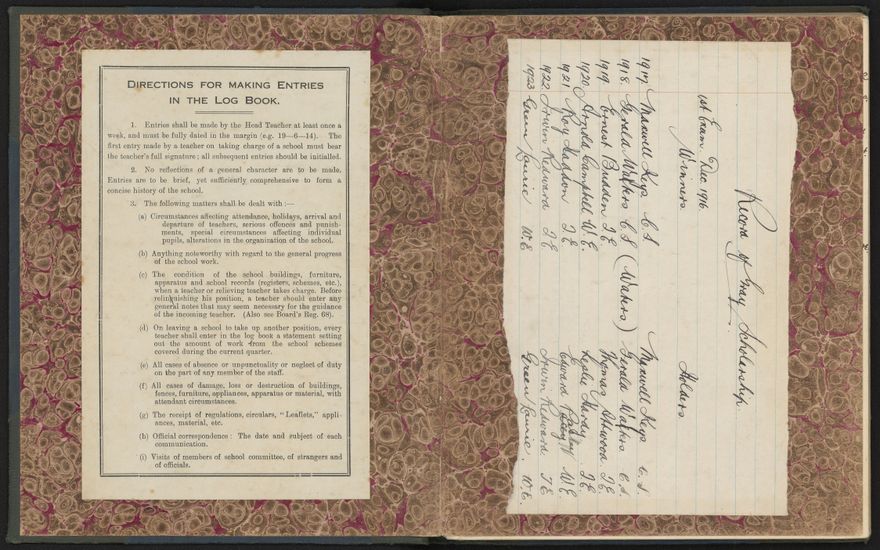 DIRECTIONS FOR MAKING ENTRIES
IN THE LOG BOOK.
1. Entries shall be made by the Head Teacher at least once a
week, and must be fully dated in the margin (e.g. 19—6—14). The
first entry made by a teacher on taking charge of a school must bear
the teacher's full signature; all subsequent entries should be initialled.
2. No reflections of a general character are to be made.
Entries are to be brief, yet sufficiently comprehensive to form a
concise history of the school.
3. The following matters shall be dealt with :—
(a) Circumstances affecting attendance, holidays, arrival and
departure of teachers, serious offences and punish-
ments, special circumstances affecting individual
pupils, alterations in the organization of the school.
(b) Anything noteworthy with regard to the general progress
of the school work.
(c) The condition of the school buildings, furniture,
apparatus and school records (registers, schemes, etc.),
when a teacher or relieving teacher takes charge. Before
relinquishing his position, a teacher should enter any
general notes that may seem necessary for the guidance
of the incoming teacher. (Also see Board's Reg. 68).
(d) On leaving a school to take up another position, every
teacher shall enter in the log book a statement setting
out the amount of work from the school schemes
covered during the current quarter.
(e) All cases of absence or unpunctuality or neglect of duty
on the part of any member of the staff.
(f) All cases of damage, loss or destruction of buildings,
fences, furniture, appliances, apparatus or material, with
attendant circumstances.
(g) The receipt of regulations, circulars, "Leaflets," appli-
ances, material, etc.
(h) Official correspondence: The date and subject of each
communication.
(i) Visits of members of school committee, of strangers and
of officials.
Record of May Scholarship
1st Exam Dec 1916
Winners Holders
1917 Maxwell Keys C.S Maxwell Keys C.S.
1918 Gerald Walters C.S (Waters) Gerald Walters C.S.
1919 Ernest Budden T.E Thomas Attwood T.E.
1920 Arnold Campbell W.E. Leslie Hardy T.E.
1921 Roy Haddon T.E Edward W.E.
1922 Irwin Redward T.E Irwin Redward T.E
1923 Green Rennie W.E Green Rennie. W.E.